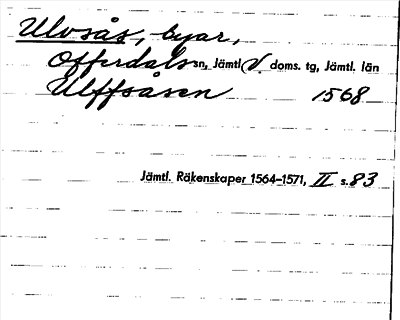 Ulvsås, byar,
Offerdals sn, Jämtl. V. doms. tg, Jämtl. län
Ulffsåsen 1568
Jämtl. Räkenskaper 1564–1571, II s. 83